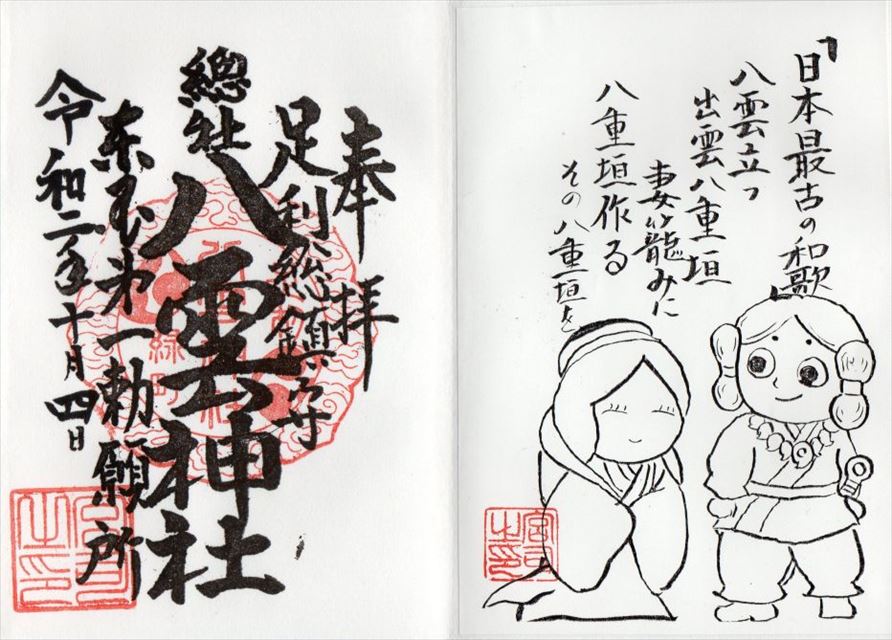 「日本最古の和歌」
八雲立つ
出雲八重垣
妻籠みに
八重垣作る
その八重垣を
宮司之印
奉拝
足利総鎮守
總社
八雲神社
東国第一勅願所
令和二年十月四日
緑町
宮司之印